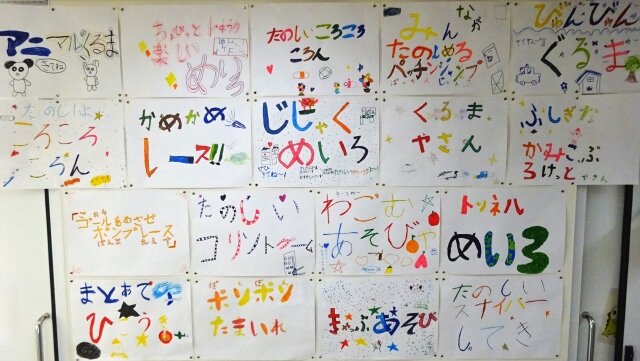 アニマルくるま
きてね
ちょっとドキドキ
楽しい
めいろ
たのしいころころ
ころん
みんな
たのしめる
パッチンジャンプ
びゅんびゅん
くるま
たのしいよ
ころころ
ころん
かめかめ
レース!!
じしゃく
めいろ
くるま
やさん
ふしぎな
かみこっぷ
ろけっと
やさん
ゴールをめざせ
ポンプレース
たのしい
コリントゲーム
わごむ
あそびや
トンネル
めいろ
ひこうき
ポンポン
たまいれ
きゃっぷあそび
たのしい
スナイパー
してき